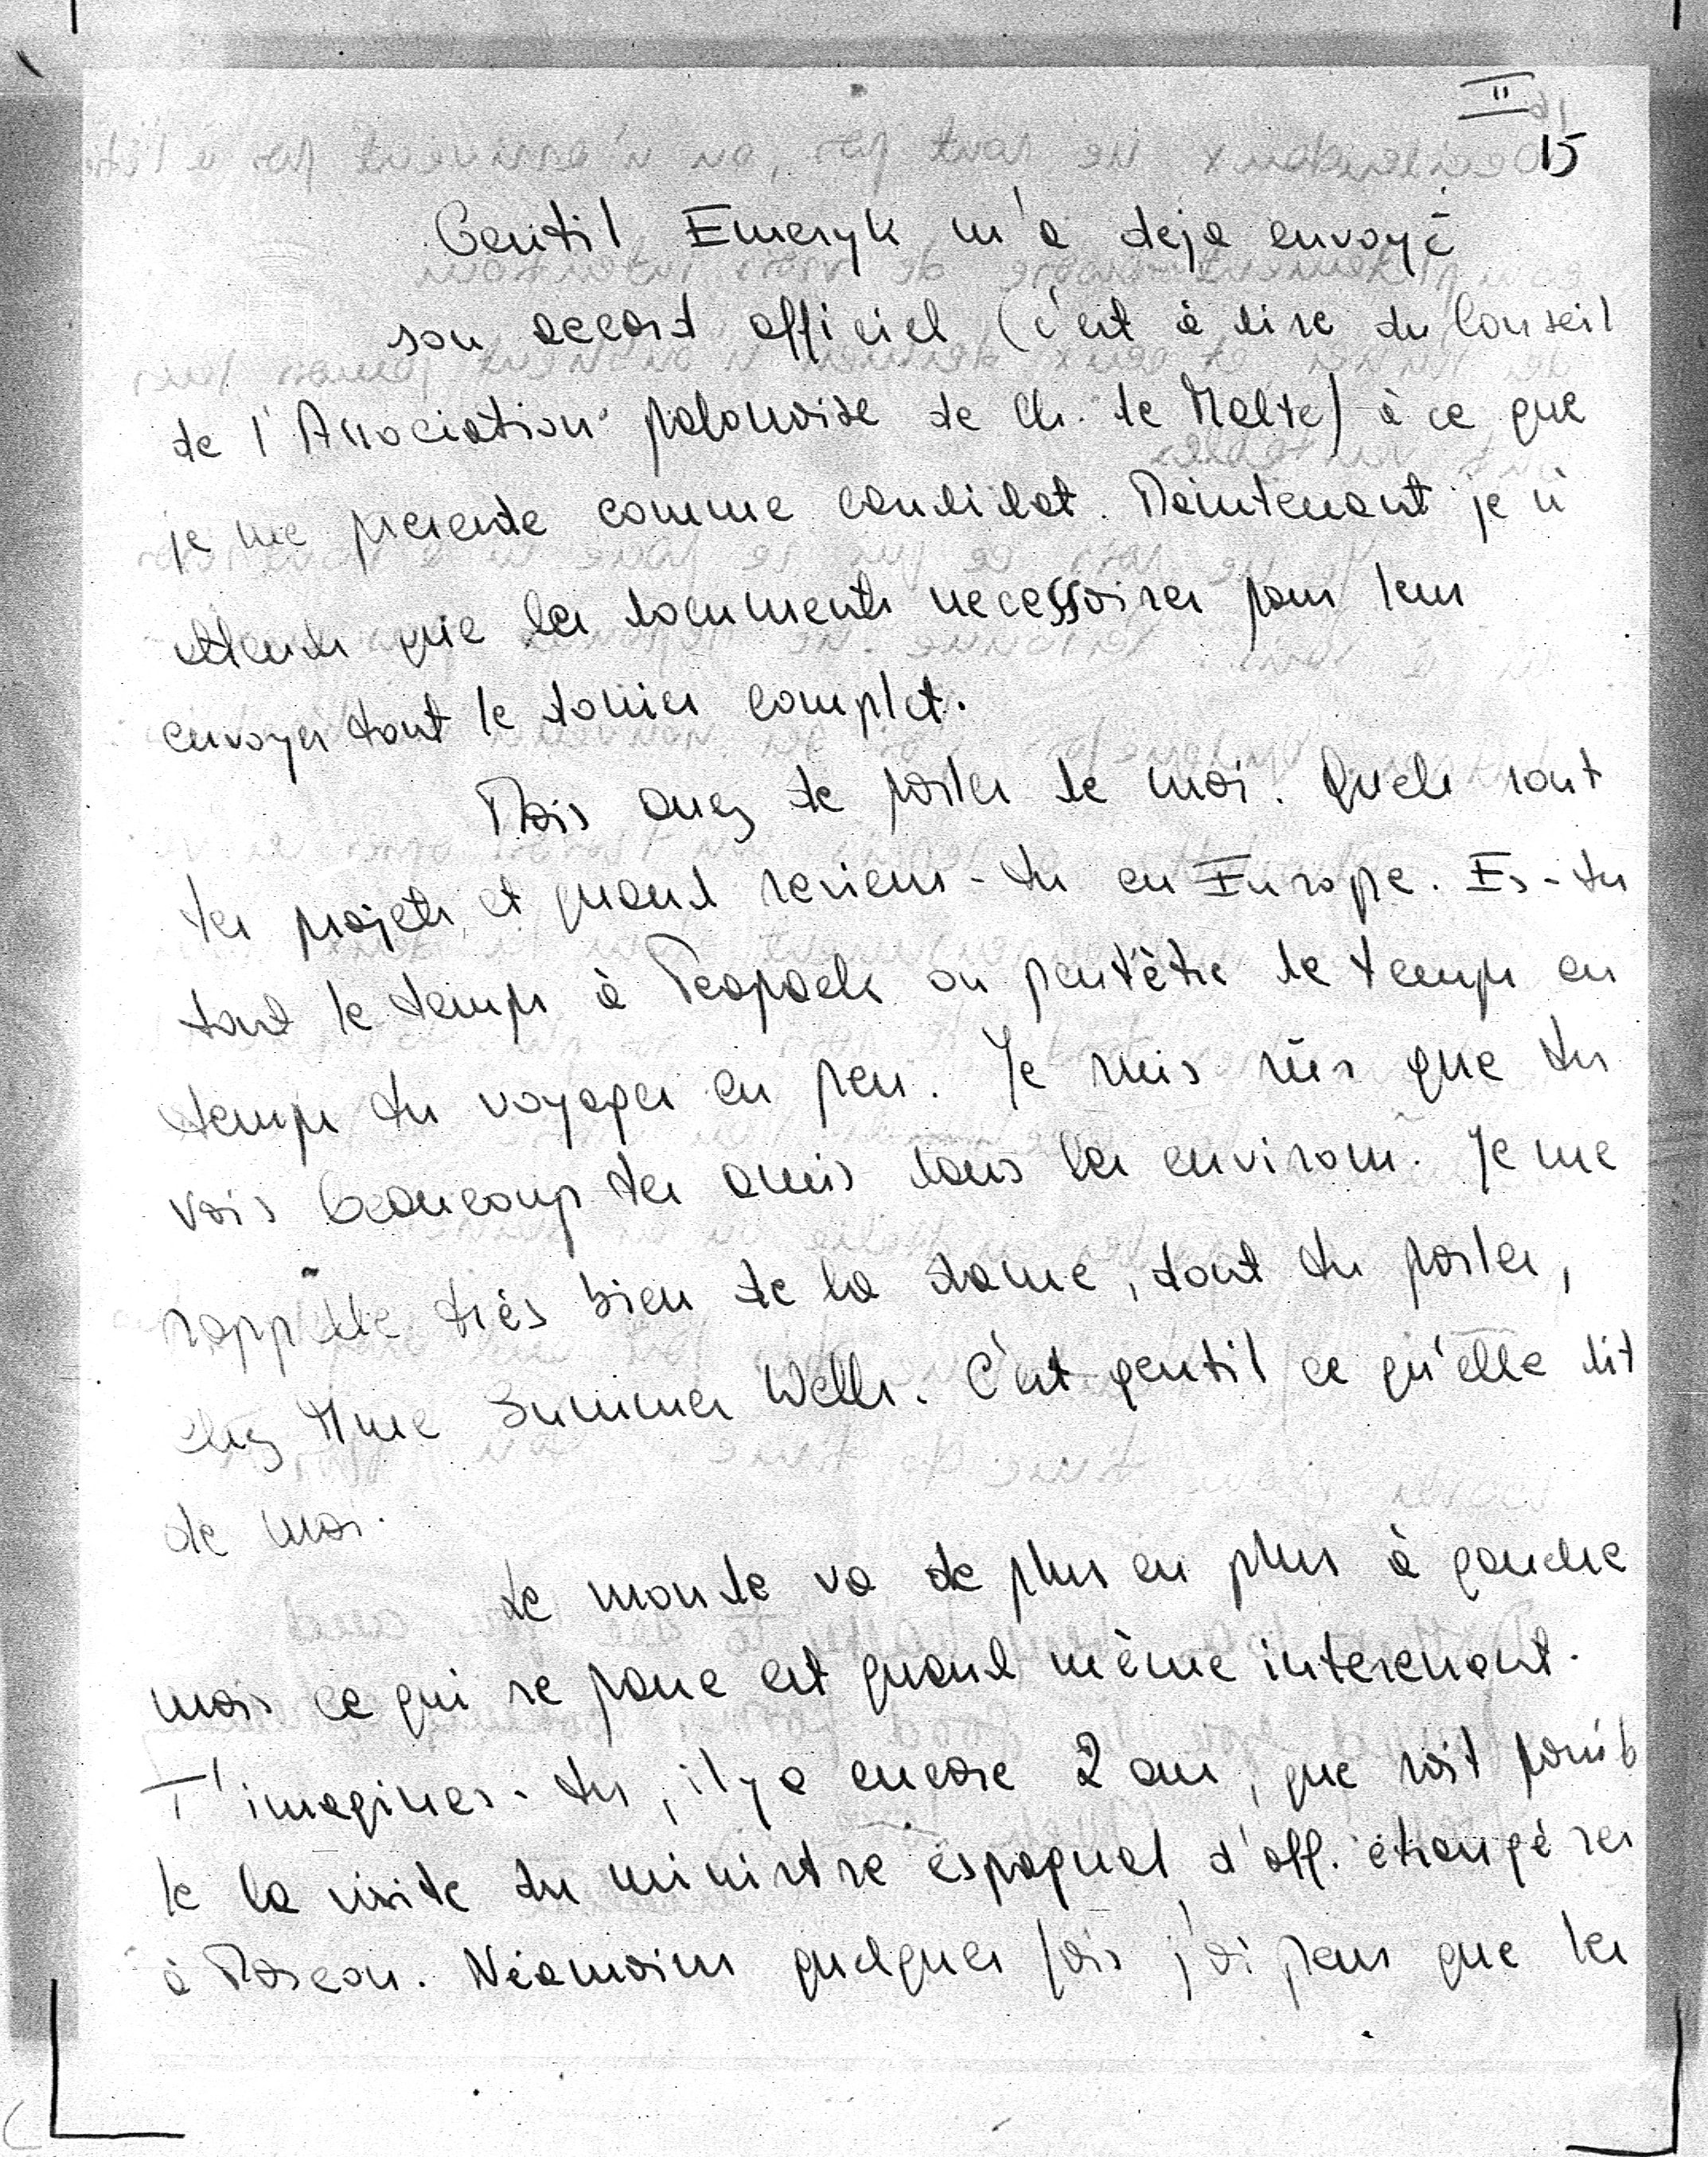 II
15
Gentil Emeryk m'a deja envoyé
son accord officiel (c'est à dire du Conseil
de l'Association polonaise de Ch. de Malte) à ce que
je me presente comme candidat. Maintenant je n'
attends que les documents necessaires pour leur
envoyer tout le dossier complet.
Mais assez de parler de moi. Quels sont
tes projets, et quand reviens-tu en Europe. Es-tu
tout le temps à Peapack ou peut'être de temps en
temps tu voyages en peu. Je suis sûr que tu
vois beaucoup des amis dans les environs. Je me
rappelle très bien de la dame, dont tu parles,
chez Mme Summer Wells. C'est gentil ce qu'elle dit
de moi.
Le monde va de plus en plus à gauche
mais ce qui se passe est quand même interessant.
T'imagines-tu, il y a encore 2 ans, que soit possib
le la visite du ministre éspagnol d'aff. étrangéres
à Moscou. Néamoins quelques fois j'ai peur que les